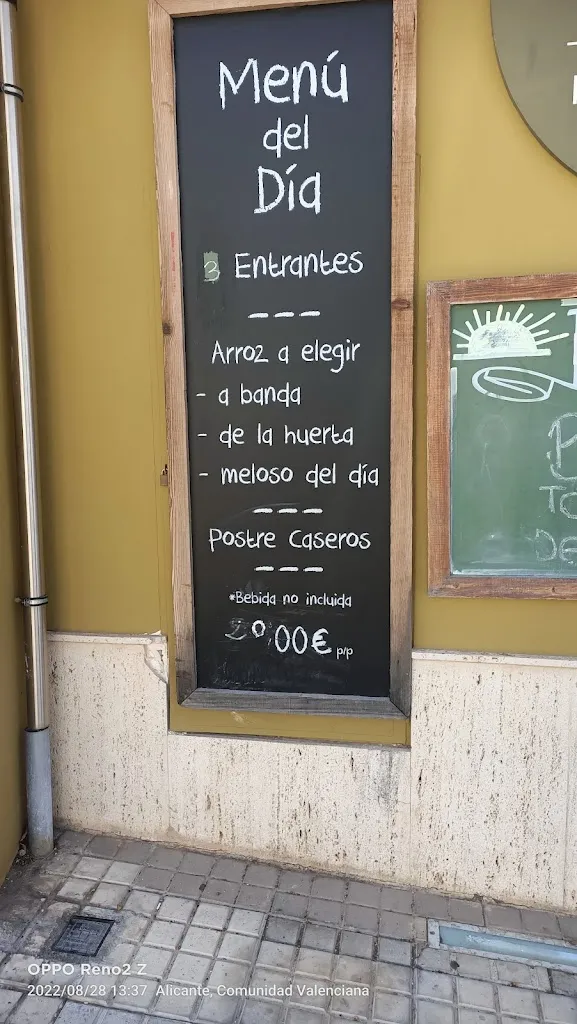 Menú
del
Día
3 Entrantes
Arroz a elegir
- a banda
- de la huerta
- meloso del día
Postre Caseros
*Bebida no incluida
20,00€ p/p
OPPO Reno2 Z
2022/08/28 13:37 Alicante, Comunidad Valenciana